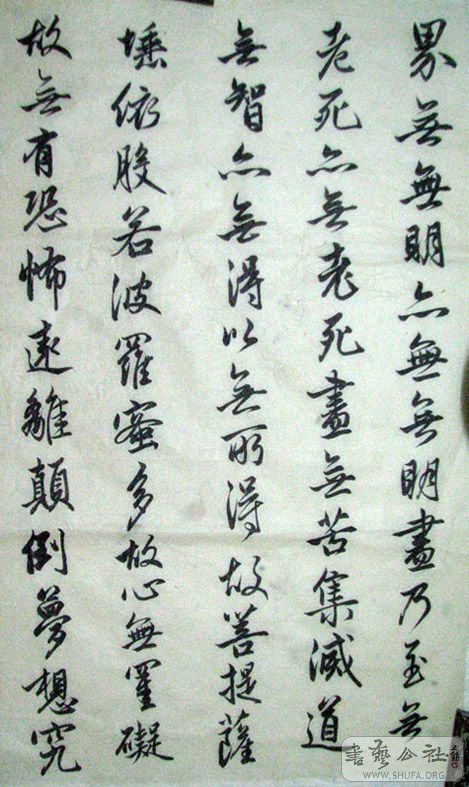 界無無明亦無無明盡乃至無
老死亦無老死盡無苦集滅道
無智亦無得以無所得故菩提薩
埵依般若波羅蜜多故心無罣礙
故無有恐怖遠離顛倒夢想究
書藝公社
WWW.SHUFA.ORG